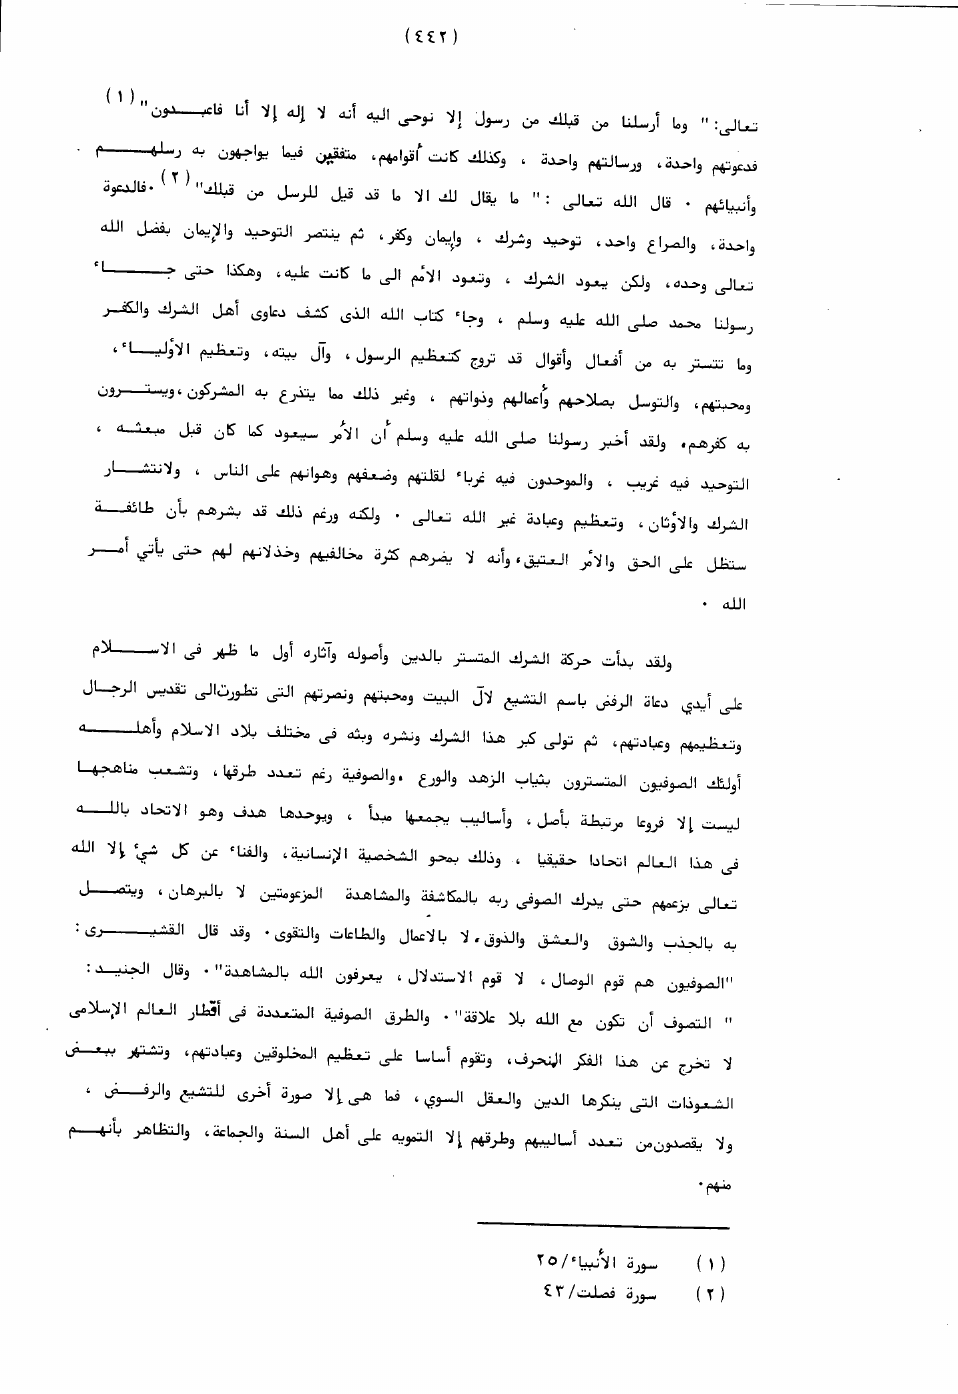 (٤٤٢)
تعالى: " وما أرسلنا من قبلك من رسول إلا نوحى اليه أنه لا إله إلا أنا فاعبدون" (١)
فدعوتهم واحدة، ورسالتهم واحدة ، وكذلك كانت أقوامهم، متفقين فيما يواجهون به رسلهم
وأنبيائهم ٠ قال الله تعالى :" ما يقال لك الا ما قد قيل للرسل من قبلك" (٢) ٠فالدعوة
واحدة، والصراع واحد، توحيد وشرك ، وإيمان وكفر، ثم ينتصر التوحيد والإيمان بفضل الله
تعالى وحده، ولكن يعود الشرك ، وتعود الأمم الى ما كانت عليه، وهكذا حتى جاء
رسولنا محمد صلى الله عليه وسلم ، وجاء كتاب الله الذى كشف دعاوى أهل الشرك والكفر
وما تتستر به من أفعال وأقوال قد تروج كتعظيم الرسول، وآل بيته، وتعظيم الأولياء،
ومحبتهم، والتوسل بصلاحهم وأعمالهم وذواتهم ، وغير ذلك مما يتذرع به المشركون،ويسترون
به كفرهم، ولقد أخبر رسولنا صلى الله عليه وسلم أن الأمر سيعود كما كان قبل مبعثه ،
التوحيد فيه غريب ، والموحدون فيه غرباء لقلتهم وضعفهم وهوانهم على الناس ، ولانتشار
الشرك والأوثان، وتعظيم وعبادة غير الله تعالى ٠ ولكنه ورغم ذلك قد بشرهم بأن طائفة
ستظل على الحق والأمر العتيق، وأنه لا يضرهم كثرة مخالفيهم وخذلانهم لهم حتى يأتي أمر
الله ٠
ولقد بدأت حركة الشرك المتستر بالدين وأصوله وآثاره أول ما ظهر فى الاسلام
على أيدي دعاة الرفض باسم التشيع لآل البيت ومحبتهم ونصرتهم التى تطورت الى تقديس الرجال
وتعظيمهم وعبادتهم، ثم تولى كبر هذا الشرك ونشره وبثه فى مختلف بلاد الاسلام وأهله
أولئك الصوفيون المتسترون بثياب الزهد والورع ٠والصوفية رغم تعدد طرقها، وتشعب مناهجها
ليست إلا فروعا مرتبطة بأصل، وأساليب يجمعها مبدأ ، ويوحدها هدف وهو الاتحاد بالله
فى هذا العالم اتحادا حقيقيا ، وذلك بمحو الشخصية الإنسانية، والفناء عن كل شيء إلا الله
تعالى بزعمهم حتى يدرك الصوفى ربه بالمكاشفة والمشاهدة المزعومتين لا بالبرهان، ويتصل
به بالجذب والشوق والعشق والذوق، لا بالاعمال والطاعات والتقوى٠ وقد قال القشيرى:
"الصوفيون هم قوم الوصال، لا قوم الاستدلال، يعرفون الله بالمشاهدة"٠ وقال الجنيد:
" التصوف أن تكون مع الله بلا علاقة"٠ والطرق الصوفية المتعددة فى أقطار العالم الإسلامى
لا تخرج عن هذا الفكر المنحرف، وتقوم أساسا على تعظيم المخلوقين وعبادتهم، وتشتهر ببعض
الشعوذات التى ينكرها الدين والعقل السوي، فما هى إلا صورة أخرى للتشيع والرفض ،
ولا يقصدون من تعدد أساليبهم وطرقهم إلا التمويه على أهل السنة والجماعة، والتظاهر بأنهم
منهم٠
(١) سورة الأنبياء/٢٥
(٢) سورة فصلت/٤٣